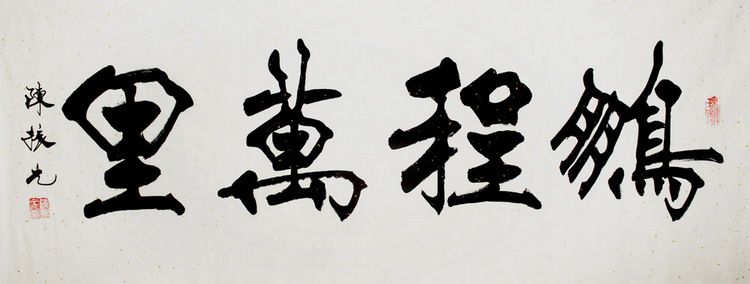 鵬程萬里
陳振元